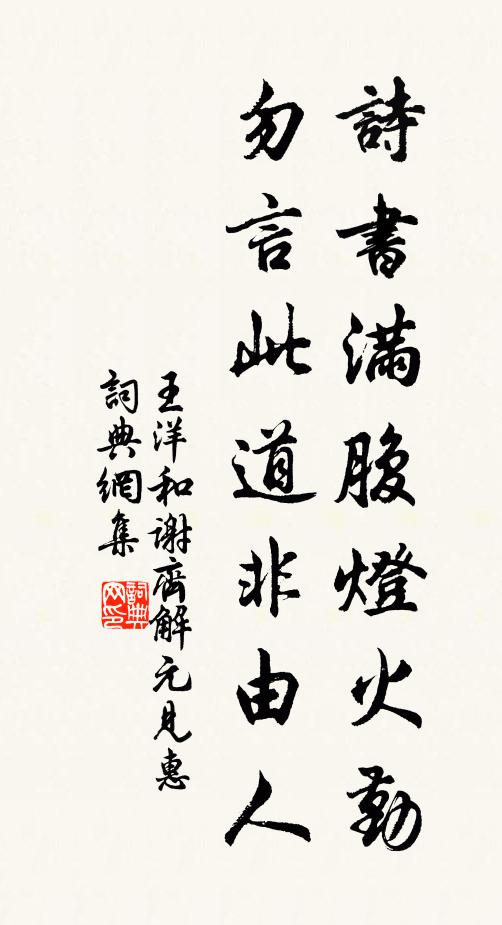 詩書滿腹燈火勤
勿言此道非由人
王洋和謝齊解元見惠
詞典網集
詞典網印